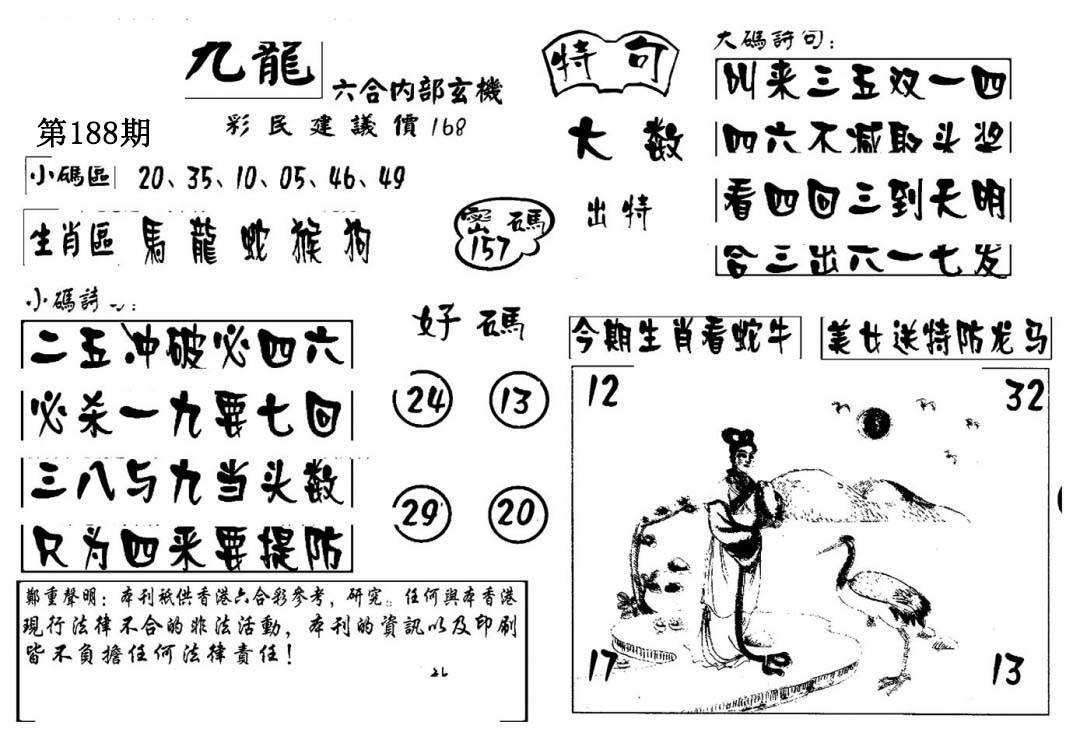 九龍
六合内部玄機
彩民建議價168
第188期
小碼區 20、35、10、05、46、49
生肖區 馬 龍 蛇 猴 狗
密碼
157
小碼詩
二五冲破必四六
必杀一九要七回
三八与九当头数
只为四来要提防
好碼
24 13
29 20
鄭重聲明：本刊衹供香港六合彩參考，研究。任何與本香港
現行法律不合的非法活動，本刊的資訊以及印刷
皆不負擔任何法律責任！
特句
大数
出特
大碼詩句：
叫来三五双一四
四六不减取头奖
看四回三到天明
合三出六一七发
今期生肖看蛇牛
美女送特防龙马
12 32
17 13